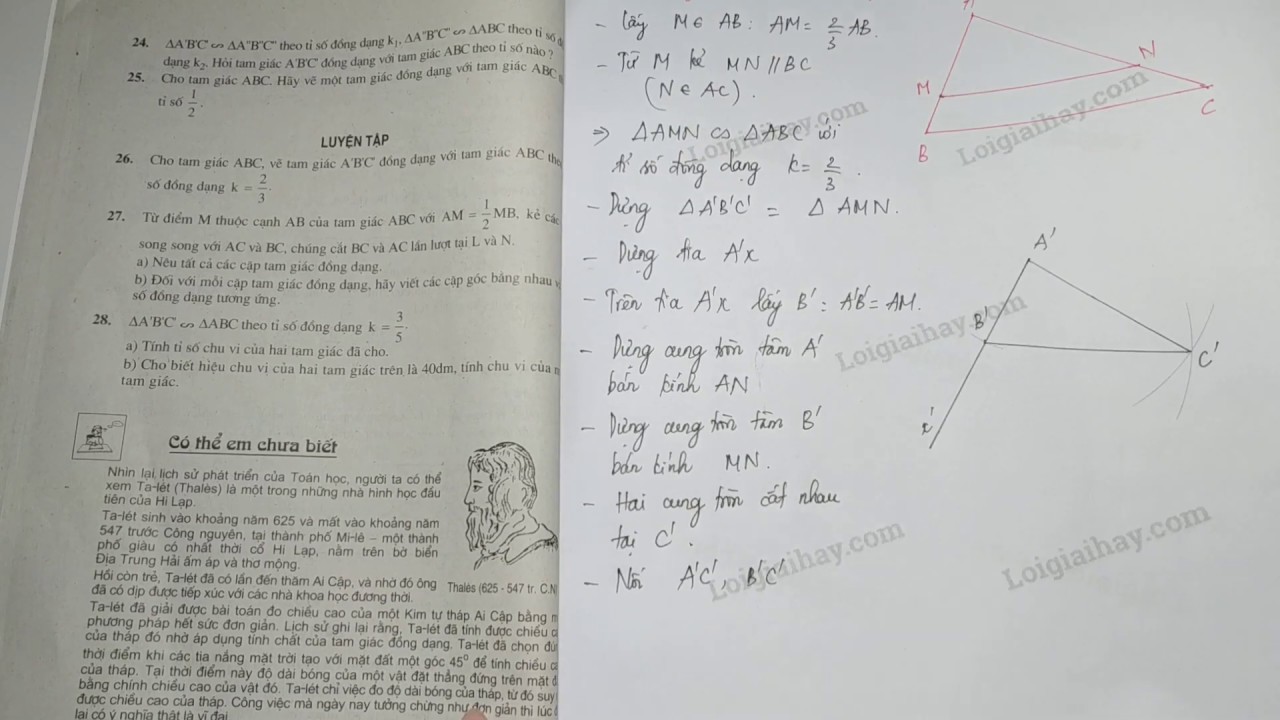 24. ΔA'B'C' ∽ ΔA"B"C" theo tỉ số đồng dạng k₁, ΔA"B"C" ∽ ΔABC theo tỉ số
dạng k₂. Hỏi tam giác A'B'C' đồng dạng với tam giác ABC theo tỉ số nào ?
25. Cho tam giác ABC. Hãy vẽ một tam giác đồng dạng với tam giác ABC
tỉ số 1/2.
LUYỆN TẬP
26. Cho tam giác ABC, vẽ tam giác A'B'C' đồng dạng với tam giác ABC
số đồng dạng k = 2/3.
27. Từ điểm M thuộc cạnh AB của tam giác ABC với AM = 1/2 MB, kẻ các
song song với AC và BC, chúng cắt BC và AC lần lượt tại L và N.
a) Nêu tất cả các cặp tam giác đồng dạng.
b) Đối với mỗi cặp tam giác đồng dạng, hãy viết các cặp góc bằng nhau
số đồng dạng tương ứng.
28. ΔA'B'C' ∽ ΔABC theo tỉ số đồng dạng k = 3/5.
a) Tính tỉ số chu vi của hai tam giác đã cho.
b) Cho biết hiệu chu vi của hai tam giác trên là 40dm, tính chu vi của
tam giác.
Có thể em chưa biết
Nhìn lại lịch sử phát triển của Toán học, người ta có thể
xem Ta-lét (Thalès) là một trong những nhà hình học đầu
tiên của Hi Lạp.
Ta-lét sinh vào khoảng năm 625 và mất vào khoảng năm
547 trước Công nguyên, tại thành phố Mi-lê – một thành
phố giàu có nhất thời cổ Hi Lạp, nằm trên bờ biển
Địa Trung Hải ấm áp và thơ mộng.
Hồi còn trẻ, Ta-lét đã có lần đến thăm Ai Cập, và nhờ đó ông
đã có dịp được tiếp xúc với các nhà khoa học đương thời.
Thalès (625 - 547 tr. C.N
Ta-lét đã giải được bài toán đo chiều cao của một Kim tự tháp Ai Cập bằng
phương pháp hết sức đơn giản. Lịch sử ghi lại rằng, Ta-lét đã tính được chiều
của tháp đó nhờ áp dụng tính chất của tam giác đồng dạng. Ta-lét đã chọn
thời điểm khi các tia nắng mặt trời tạo với mặt đất một góc 45° để tính chiều
của tháp. Tại thời điểm này độ dài bóng của một vật đặt thẳng đứng trên mặt
bằng chính chiều cao của vật đó. Ta-lét chỉ việc đo độ dài bóng của tháp, từ đó suy
được chiều cao của tháp. Công việc mà ngày nay tưởng chừng như đơn giản thì lúc
lại có ý nghĩa thật là vĩ đại
- Lấy M ∈ AB : AM = 2/3 AB.
- Từ M kẻ MN // BC
(N ∈ AC).
=> ΔAMN ∽ ΔABC với
tỉ số đồng dạng k = 2/3.
- Dựng ΔA'B'C' = ΔAMN.
- Dựng tia A'x
- Trên tia A'x lấy B' : A'B' = AM.
- Dựng cung tròn tâm A'
bán kính AN
- Dựng cung tròn tâm B'
bán kính MN.
- Hai cung tròn cắt nhau
tại C'.
- Nối A'C', B'C'
A
N
M
C
B
A'
B'
C'
Loigiaihay.com
Loigiaihay.com
Loigiaihay.com
Loigiaihay.com
Loigiaihay.com